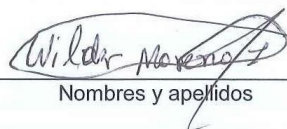 Wilder Moreno
Nombres y apellidos